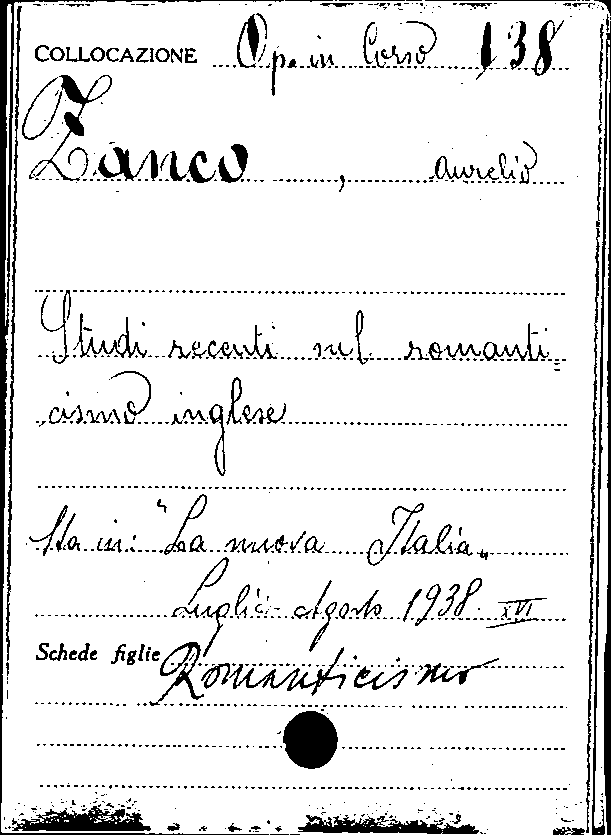 COLLOCAZIONE Op. in Corso 138
Zanco, Aurelio
Studi recenti sul romanti=
cismo inglese
Sta in: "La nuova Italia„
Luglio-Agosto 1938. XVI
Schede figlie Romanticismo